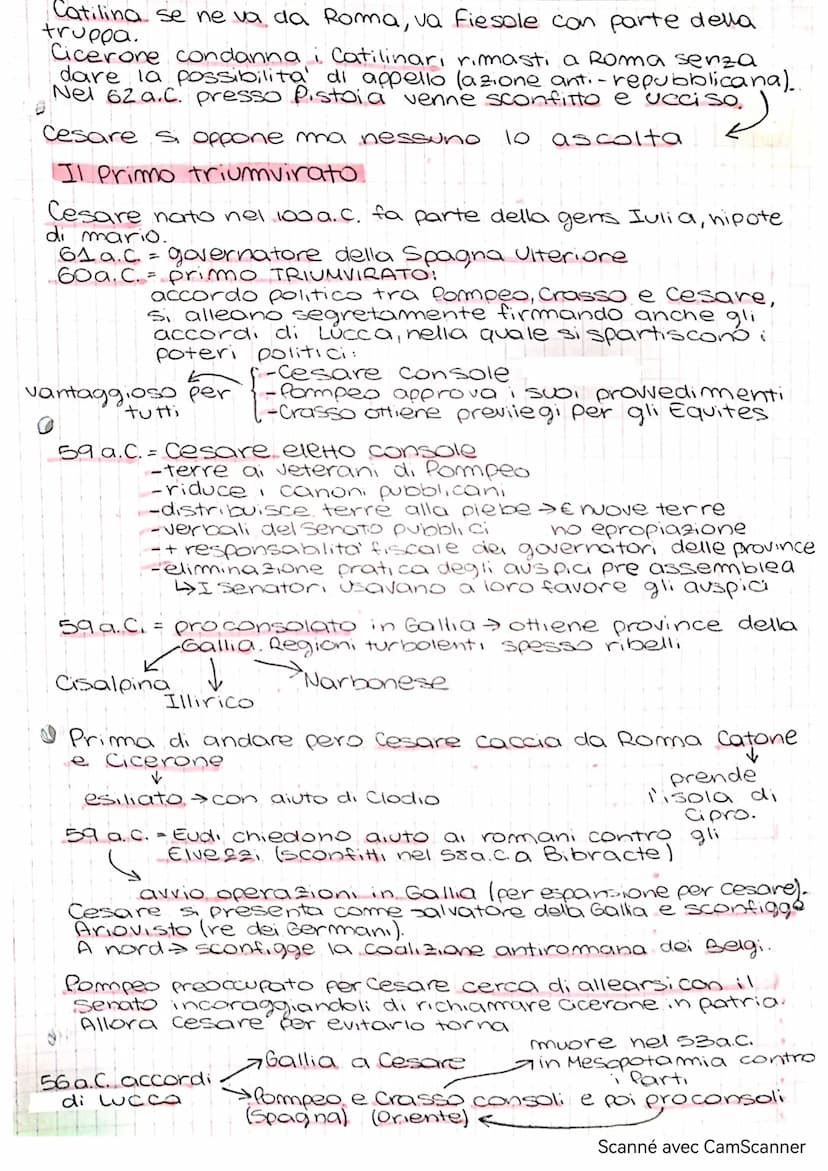 Catilina se ne va da Roma, va Fiesole con parte della
truppa.
Cicerone condanna i Catilinari rimasti a Roma senza
dare la possibilità di appello (azione anti-repubblicana).
Nel 62 a.C. presso Pistoia venne sconfitto e ucciso.
Cesare si oppone ma nessuno lo ascolta
Il Primo triumvirato
Cesare nato nel 100 a.C. fa parte della gens Iulia, nipote
di mario.
61 a.C. = governatore della Spagna Ulteriore
60 a.C. = primo TRIUMVIRATO:
accordo politico tra Pompeo, Crasso e Cesare,
si alleano segretamente firmando anche gli
accordi di Lucca, nella quale si spartiscono i
poteri politici:
-Cesare console
vantaggioso per -Pompeo approva i suoi provvedimenti
tutti -Crasso ottiene previlegi per gli Equites
59 a.C. = Cesare eletto console
-terre ai veterani di Pompeo
-riduce i canoni pubblicani
-distribuisce terre alla plebe → € nuove terre
-verbali del Senato pubblici no epropiazione
-+ responsabilità fiscale dei governatori delle province
-eliminazione pratica degli auspici pre assemblea
↳ I senatori usavano a loro favore gli auspici
59 a.C. = proconsolato in Gallia → ottiene province della
Gallia. Regioni turbolenti spesso ribelli
Cisalpina Narbonese
Illirico
Prima di andare pero Cesare caccia da Roma Catone
e Cicerone
prende
esiliato → con aiuto di Clodio l'isola di
Cipro.
59 a.C. = Eudi chiedono aiuto ai romani contro gli
Elvezzi (sconfitti nel 58 a.C. a Bibracte)
avvio operazioni in Gallia (per espansione per Cesare).
Cesare si presenta come salvatore della Gallia e sconfigge
Ariovisto (re dei Germani).
A nord → sconfigge la coalizione antiromana dei Belgi.
Pompeo preoccupato per Cesare cerca di allearsi con il
Senato incoraggiandoli di richiamare Cicerone in patria.
Allora Cesare per evitarlo torna
muore nel 53 a.C.
Gallia a Cesare in Mesopotamia contro
56 a.C. accordi i Parti
di Lucca Pompeo e Crasso consoli e poi proconsoli
(Spagna) (Oriente)
Scanné avec CamScanner